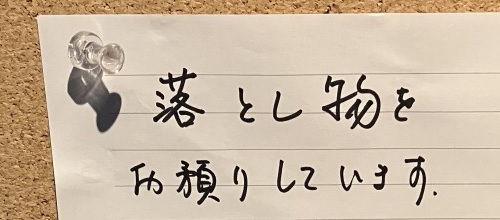 落とし物を
お預りしています.